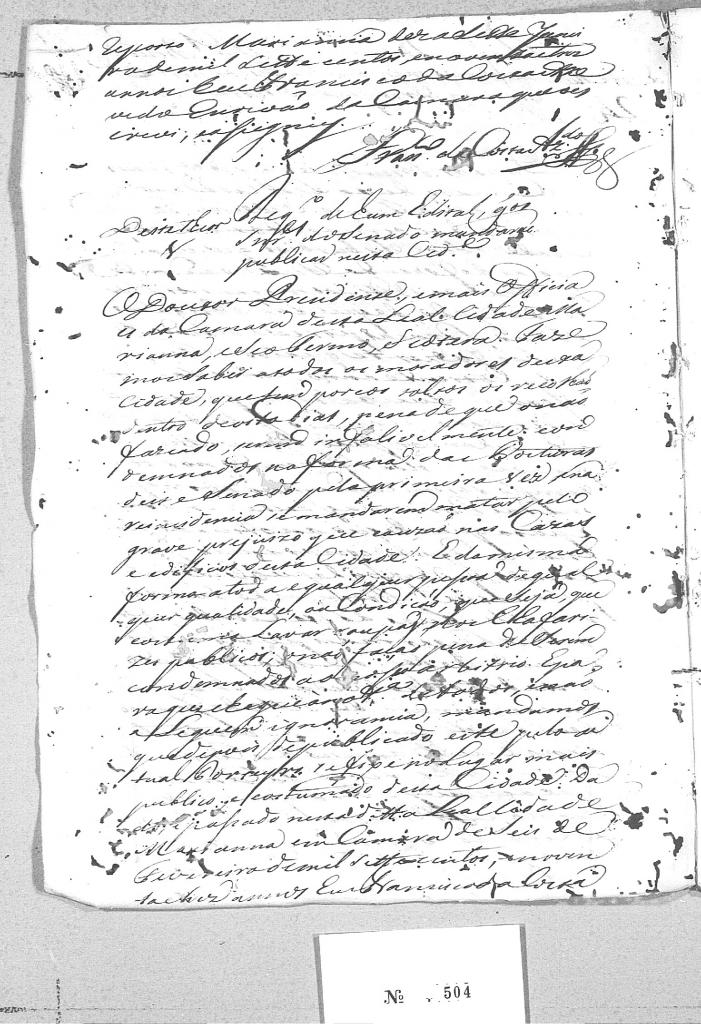 reporto. Marianna dezasette de Janei
ro de mil Sette centos, e noventa e tres
annos Eu Francisco da Costa Aze
vedo Escrivaõ da Camara que o es
crevi, e assigney
Fran.co da Costa Az.do
Reg.o de hum Edital, q̃ os
Snr.es do Senado mandaraõ
publicar nesta Cid.e
O Doutor Prezidente, e mais Officia
es da Camara desta Leal Cidade Ma
rianna, e Seo Termo, &cetera. Faze
mos Saber a todos os moradores desta
Cidade, que tem porcos soltos os recolhaõ
dentro de oito dias, pena de que o naõ
fazendo, seraõ infalivelmente con
demnados na forma das Posturas
deste Senado pela primeira vez, e na
reincidencia se mandarem matar pelo
grave prejuizo que cauzaõ nas Cazas
e edificios desta Cidade. E da mesma
forma a toda e qualquer pessoa de qual
quer qualidade, ou Condiçaõ, que seja que
costuma Lavar roupas nos Chafari
zes publicos, e nas pena de Serem
condemnados a arbitrio. E pa
ra que chegue a noticia de todos, e naõ
aleguem ignorancia, mandamos
que depois de publicado este pelo a
tual Porteyro se fixe no Lugar mais
publico, e costumado desta Cidade. Da
do e passado nesta ditta Leal Cidade
Marianna em Camara de Seis de
Fevereiro de mil Sette centos, e noven
ta e tres annos Eu Francisco da Costa
Nº 504